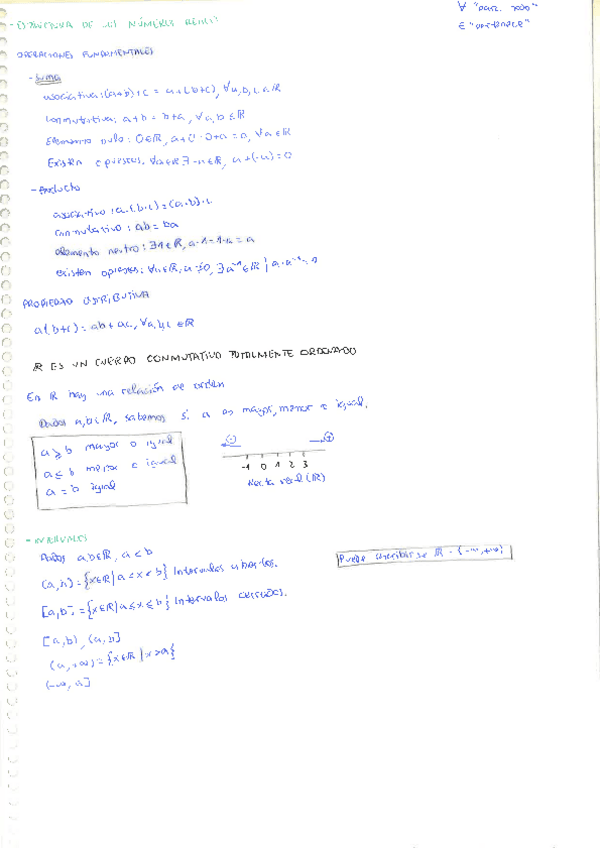 - ESTRUCTURA DE LOS NÚMEROS REALES
∀ "para todo"
∈ "pertenece"
OPERACIONES FUNDAMENTALES
- Suma
asociativa: (a+b)+c = a+(b+c), ∀a,b,c ∈ ℝ
conmutativa: a+b = b+a, ∀a,b ∈ ℝ
Elemento nulo: 0∈ℝ, a+0 = 0+a = a, ∀a∈ℝ
Existen opuestos: ∀a∈ℝ ∃ -a∈ℝ, a+(-a)=0
- Producto
asociativo: a·(b·c)=(a·b)·c
conmutativo: ab=ba
elemento neutro: ∃1∈ℝ, a·1=1·a=a
existen opuestos: ∀a∈ℝ, a≠0, ∃a⁻¹∈ℝ | a·a⁻¹=1
PROPIEDAD DISTRIBUTIVA
a(b+c)=ab+ac, ∀a,b,c ∈ℝ
ℝ ES UN CUERPO CONMUTATIVO TOTALMENTE ORDENADO
En ℝ hay una relación de orden
Dados a,b∈ℝ, sabemos si a es mayor, menor o igual.
a ≥ b mayor o igual
a ≤ b menor o igual
a = b igual
- +
-1 0 1 2 3
Recta real (ℝ)
- INTERVALOS
Dados a,b∈ℝ, a<b
Puede escribirse ℝ = (-∞,+∞)
(a,b)={x∈ℝ | a<x<b} Intervalos abiertos.
[a,b]={x∈ℝ | a≤x≤b} Intervalos cerrados.
[a,b), (a,b]
(a,+∞)={x∈ℝ | x>a}
(-∞,a]